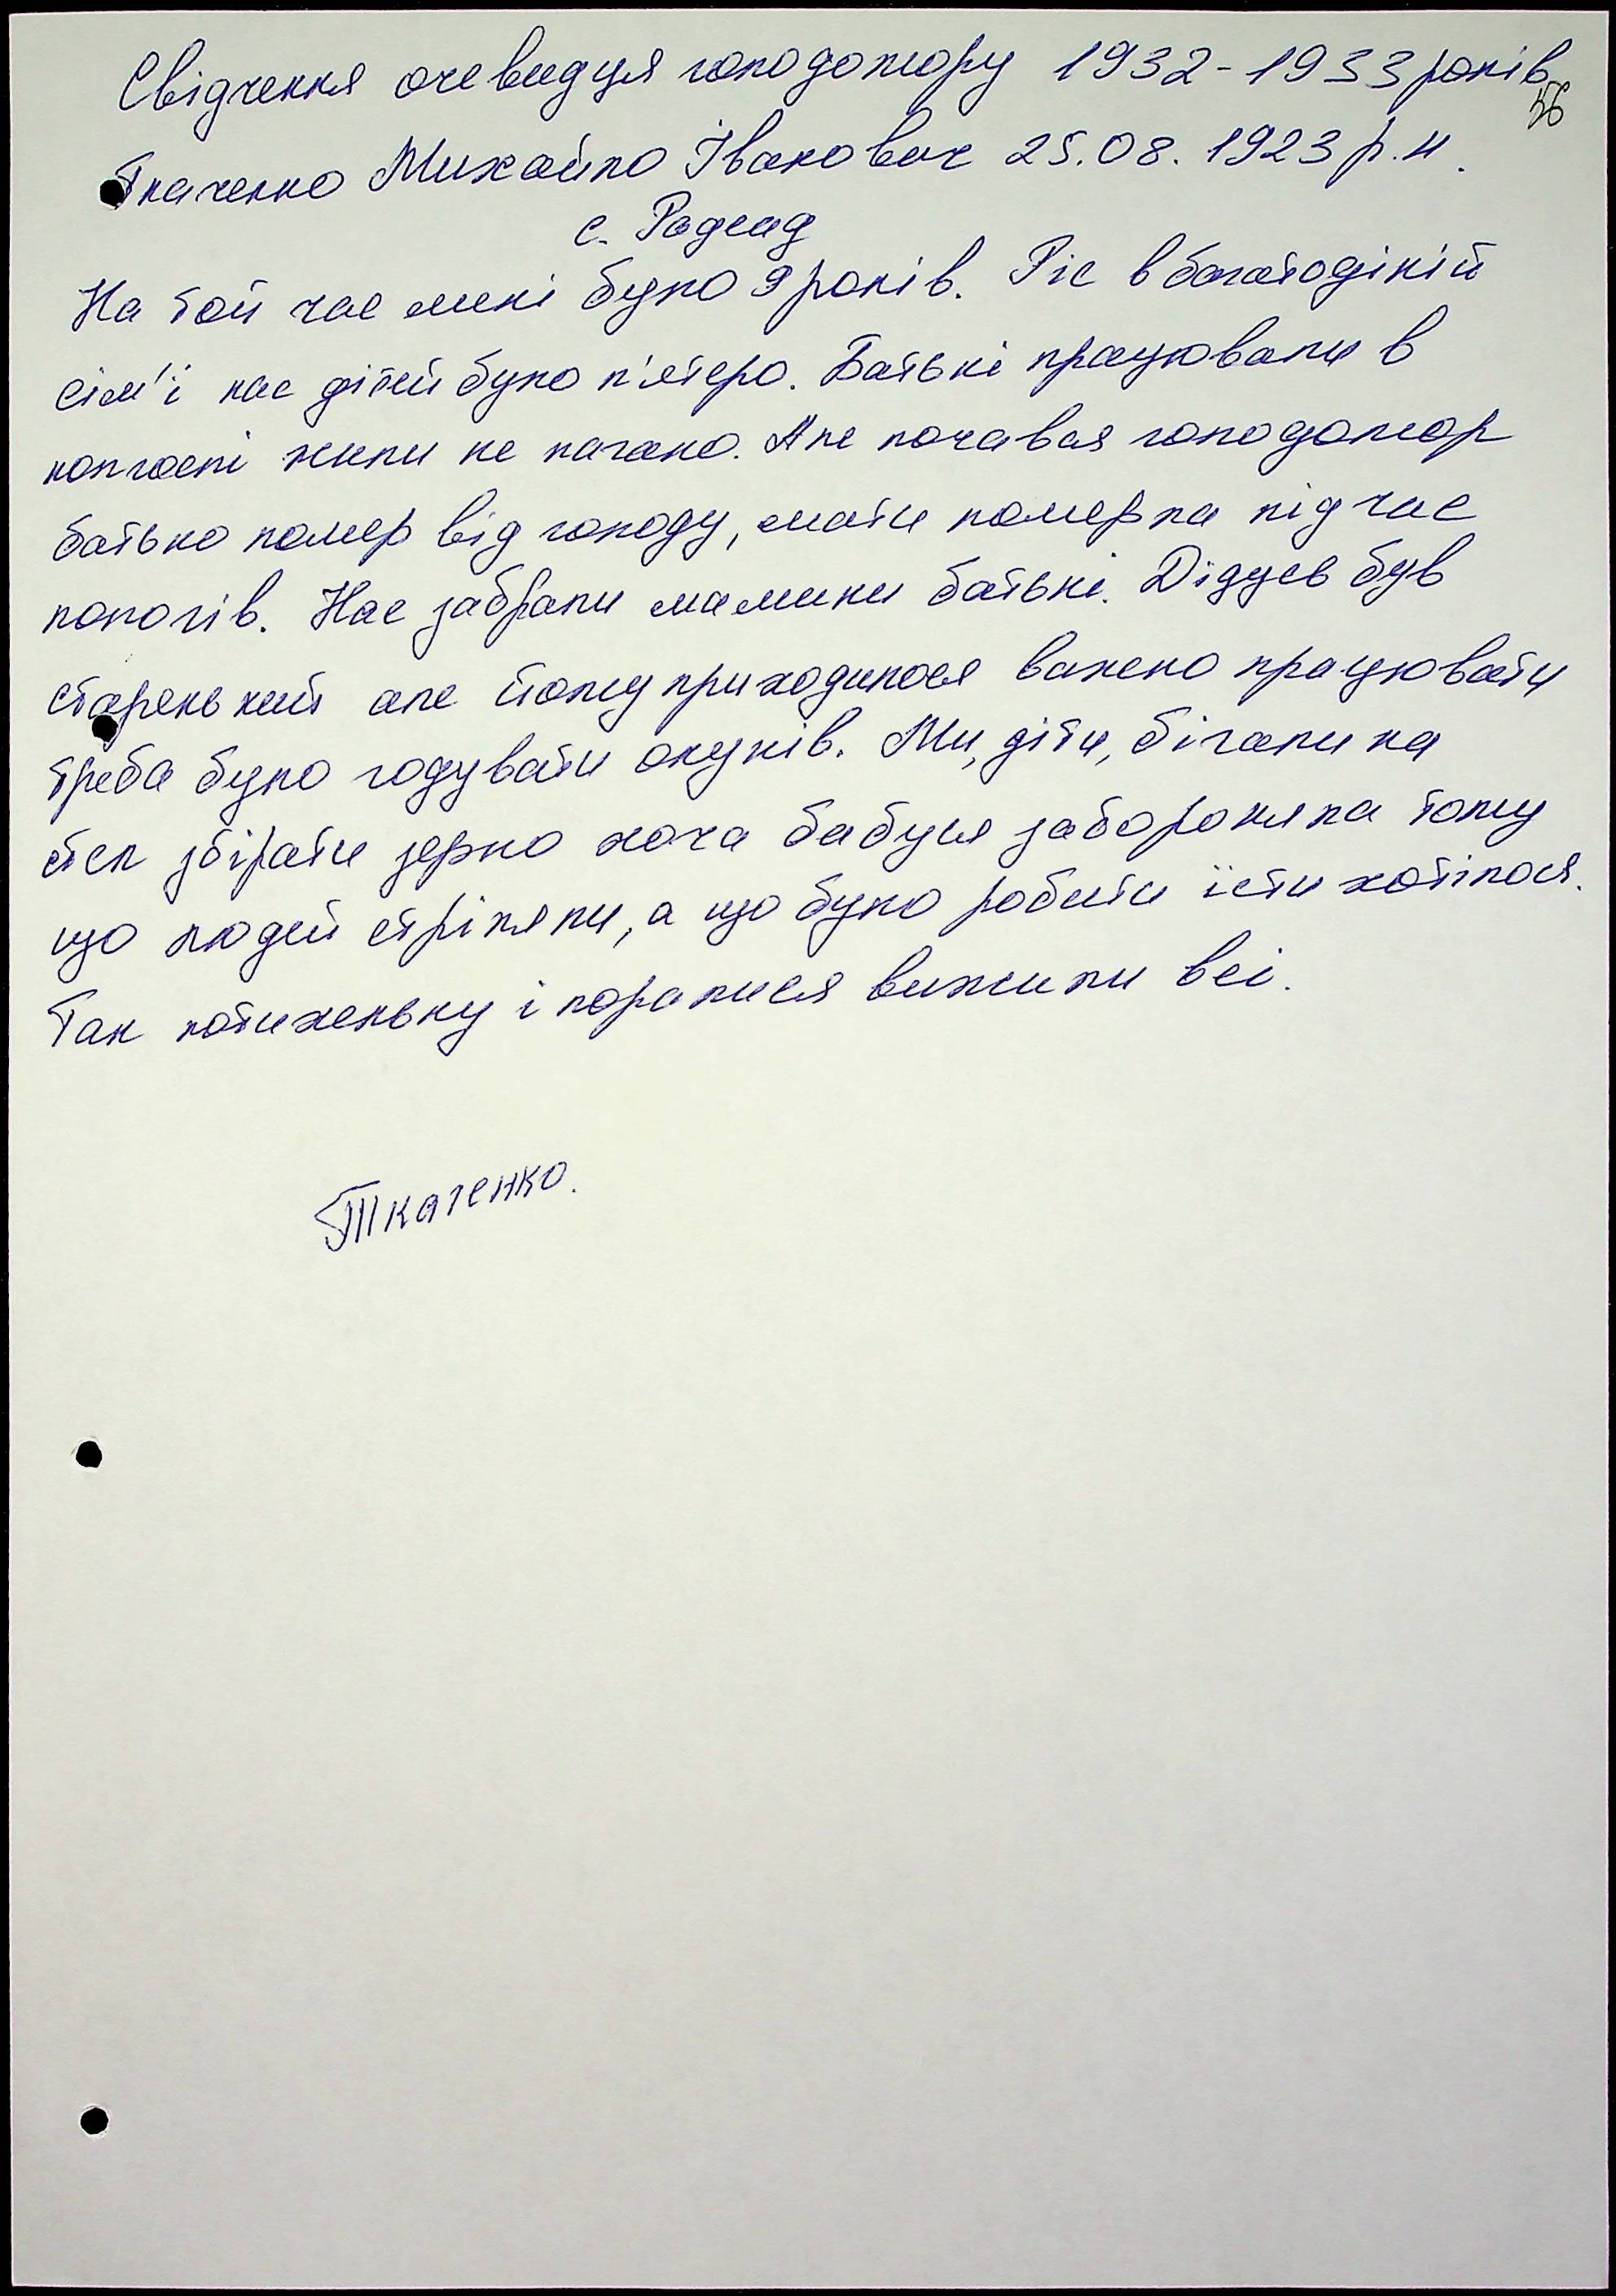 Свідчення очевидця голодомору 1932-1933 років
56
Ткаченко Михайло Іванович 25.08.1923 р.н.
с. Радсад
На той час мині було 9 років. Ріс в багатодіній
сім'ї нас дітей було п'ятеро. Батькі працювали в
колгоспі жили не пагано. Але почався голодомор
батько помер від голоду, мати померла під час
пологів. Нас забрали мамини батькі. Дідусь був
старенький але йому приходилося важено працювати
треба було годувати онуків. Ми, діти, бігали на
степ збірати зерно хоча бабуся забороняла тому
що людей стріляли, а що було робити їсти хотілося.
Так потихеньку і поралися вижили всі.
Ткаченко.